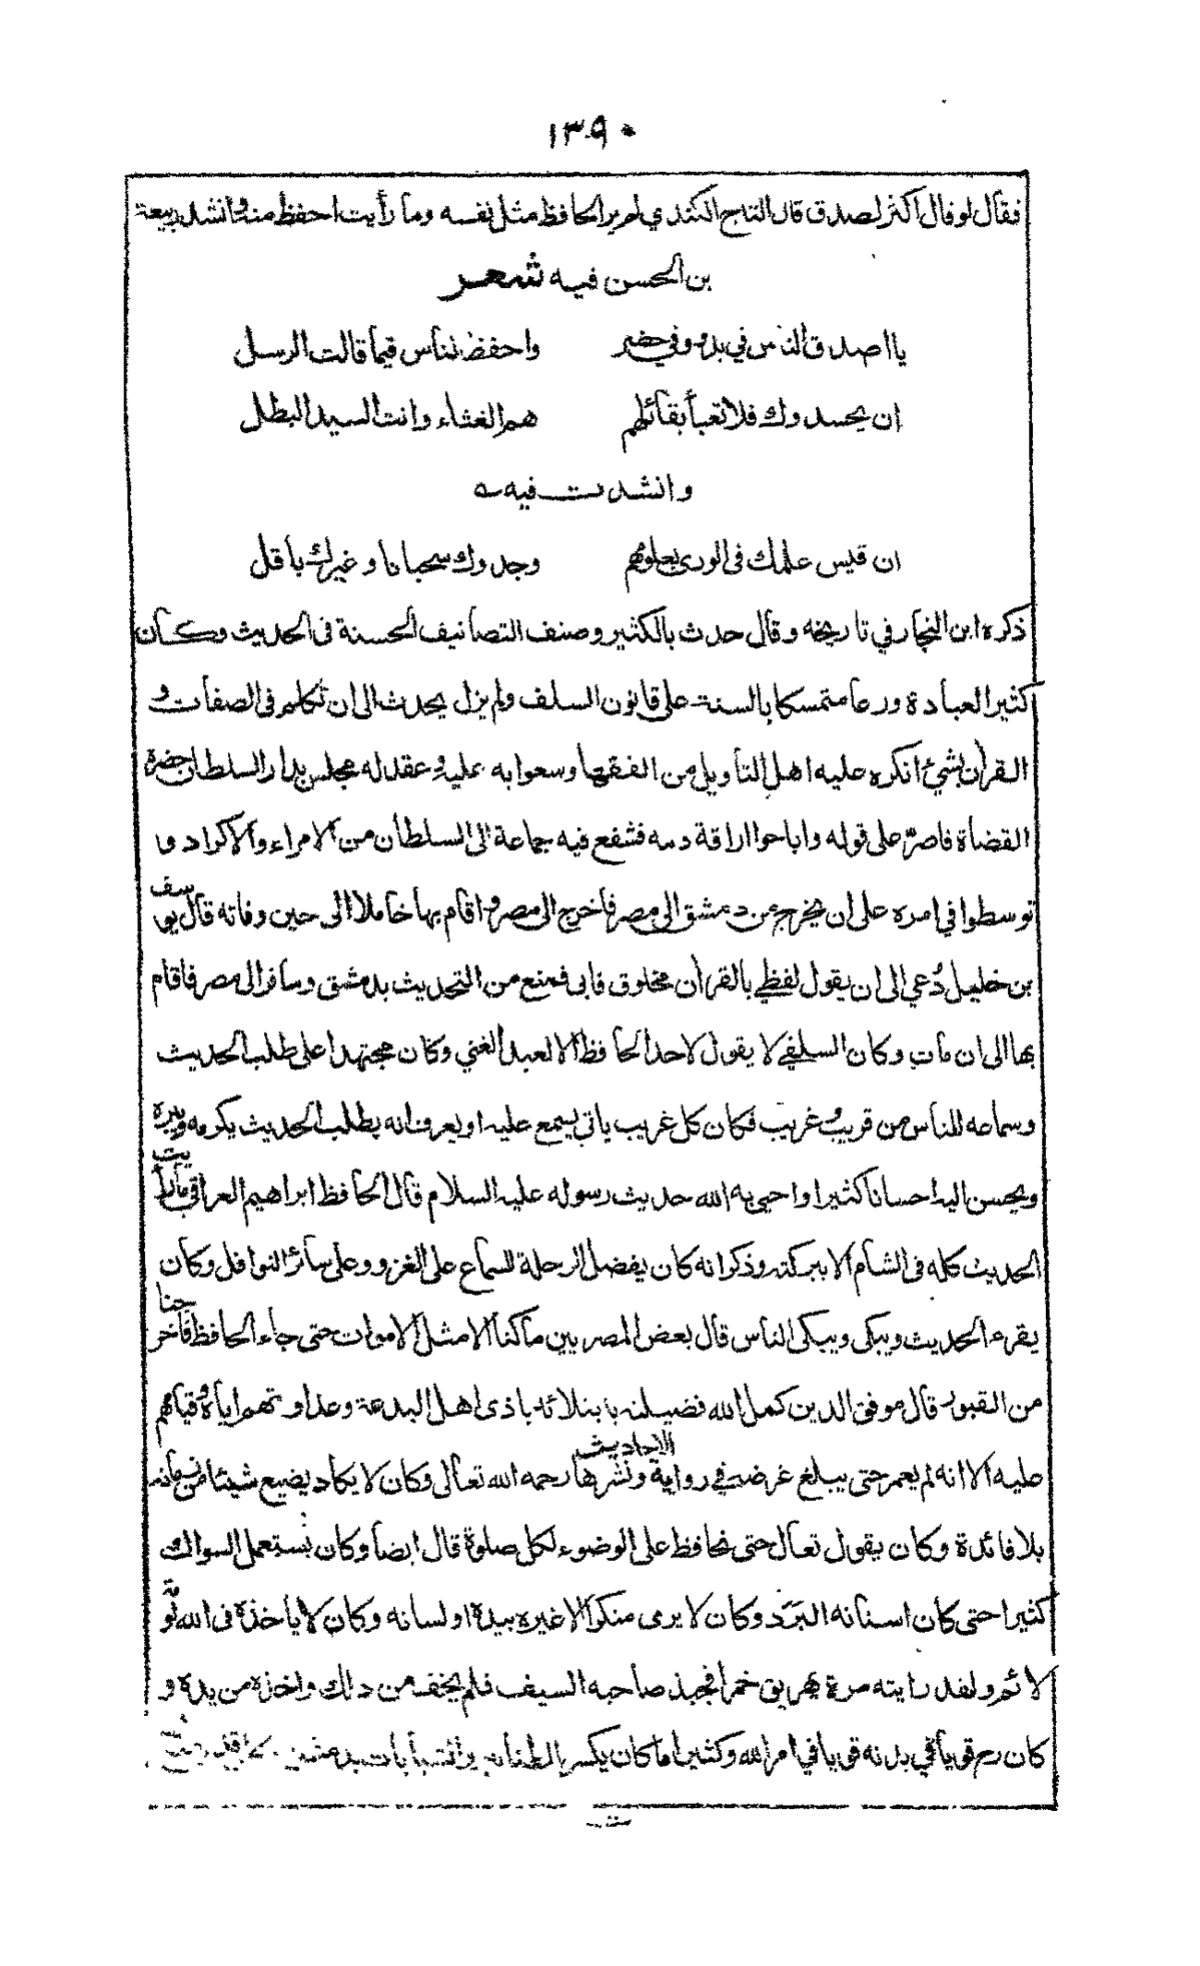 ١٣٩٠
فقال لو قال اكثر لصدق قال التاج الكندي لم ير الحافظ مثل نفسه وما رأيت احفظ منه وانشد ربيعة
بن الحسن فيه شعر
يا اصدق الناس في بدو وفي حضر واحفظ الناس فيما قالت الرسل
ان يحسدوك فلا تعبأ بقائلهم هم الغثاء وانت السيد البطل
وانشدت فيه
ان قيس علمك فى الورى بعلومهم وجدوك سحبانا وغيرك باقل
ذكره ابن النجار في تاريخه وقال حدث بالكثير وصنف التصانيف الحسنة فى الحديث وكان
كثير العبادة ورعا متمسكا بالسنة على قانون السلف ولم يزل يحدث الى ان تكلم فى الصفات و
القرأن بشيء انكره عليه اهل التأويل من الفقهاء وسعوا به عليه وعقد له مجلس بدار السلطان حضره
القضاة فاصرّ على قوله واباحوا اراقة دمه فشفع فيه جماعة الى السلطان من الامراء والاكراد و
توسطوا في امره على ان يخرج من دمشق الى مصر فأخرج الى مصر واقام بها خاملا الى حين وفاته قال يوسف
بن خليل دُعي الى ان يقول لفظي بالقرأن مخلوق فابى فمنع من التحديث بدمشق وسافر الى مصر فاقام
بها الى ان مات وكان السلفي لا يقول لاحد الحافظ الا لعبد الغني وكان مجتهدا على طلب الحديث
وسماعه للناس من قريب غريب فكان كل غريب ياتي يسمع عليه او يعرف انه يطلب الحديث يكرمه ويبره
ويحسن اليه احسانا كثيرا واحيى به الله حديث رسوله عليه السلام قال الحافظ ابراهيم العراقي ما رأيت
الحديث كله فى الشام الا ببركته وذكر انه كان يفضل الرحلة للسماع على الغزو وعلى سائر النوافل وكان
يقرء الحديث ويبكى ويبكى الناس قال بعض المصريين ما كنا الا مثل الاموات حتى جاء الحافظ فاخرجنا
من القبور قال موفق الدين كمل الله فضيلته بابتلائه باذى اهل البدعة وعداوتهم اياه وقيامهم
عليه الا انه لم يعمر حتى يبلغ غرضه في رواية الاحاديث ونشرها رحمه الله تعالى وكان لا يكاد يضيع شيئا من زمانه
بلا فائدة وكان يقول تعال حتى نحافظ على الوضوء لكل صلوة قال ايضا وكان يستعمل السواك
كثيرا حتى كان اسنانه البَرَد وكان لا يرى منكرا الا غيره بيده او لسانه وكان لا يأخذه فى الله لومة
لائم ولقد رايته مرة يهريق خمرا فجبذ صاحبه السيف فلم يخف من ذلك واخذه من يده و
كان رح قويا في بدنه قويا في امر الله وكثيرا ما كان يكسر الطنابير والشبابات بدمشق